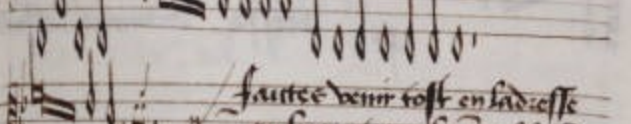 faictes venir tost en ladresse